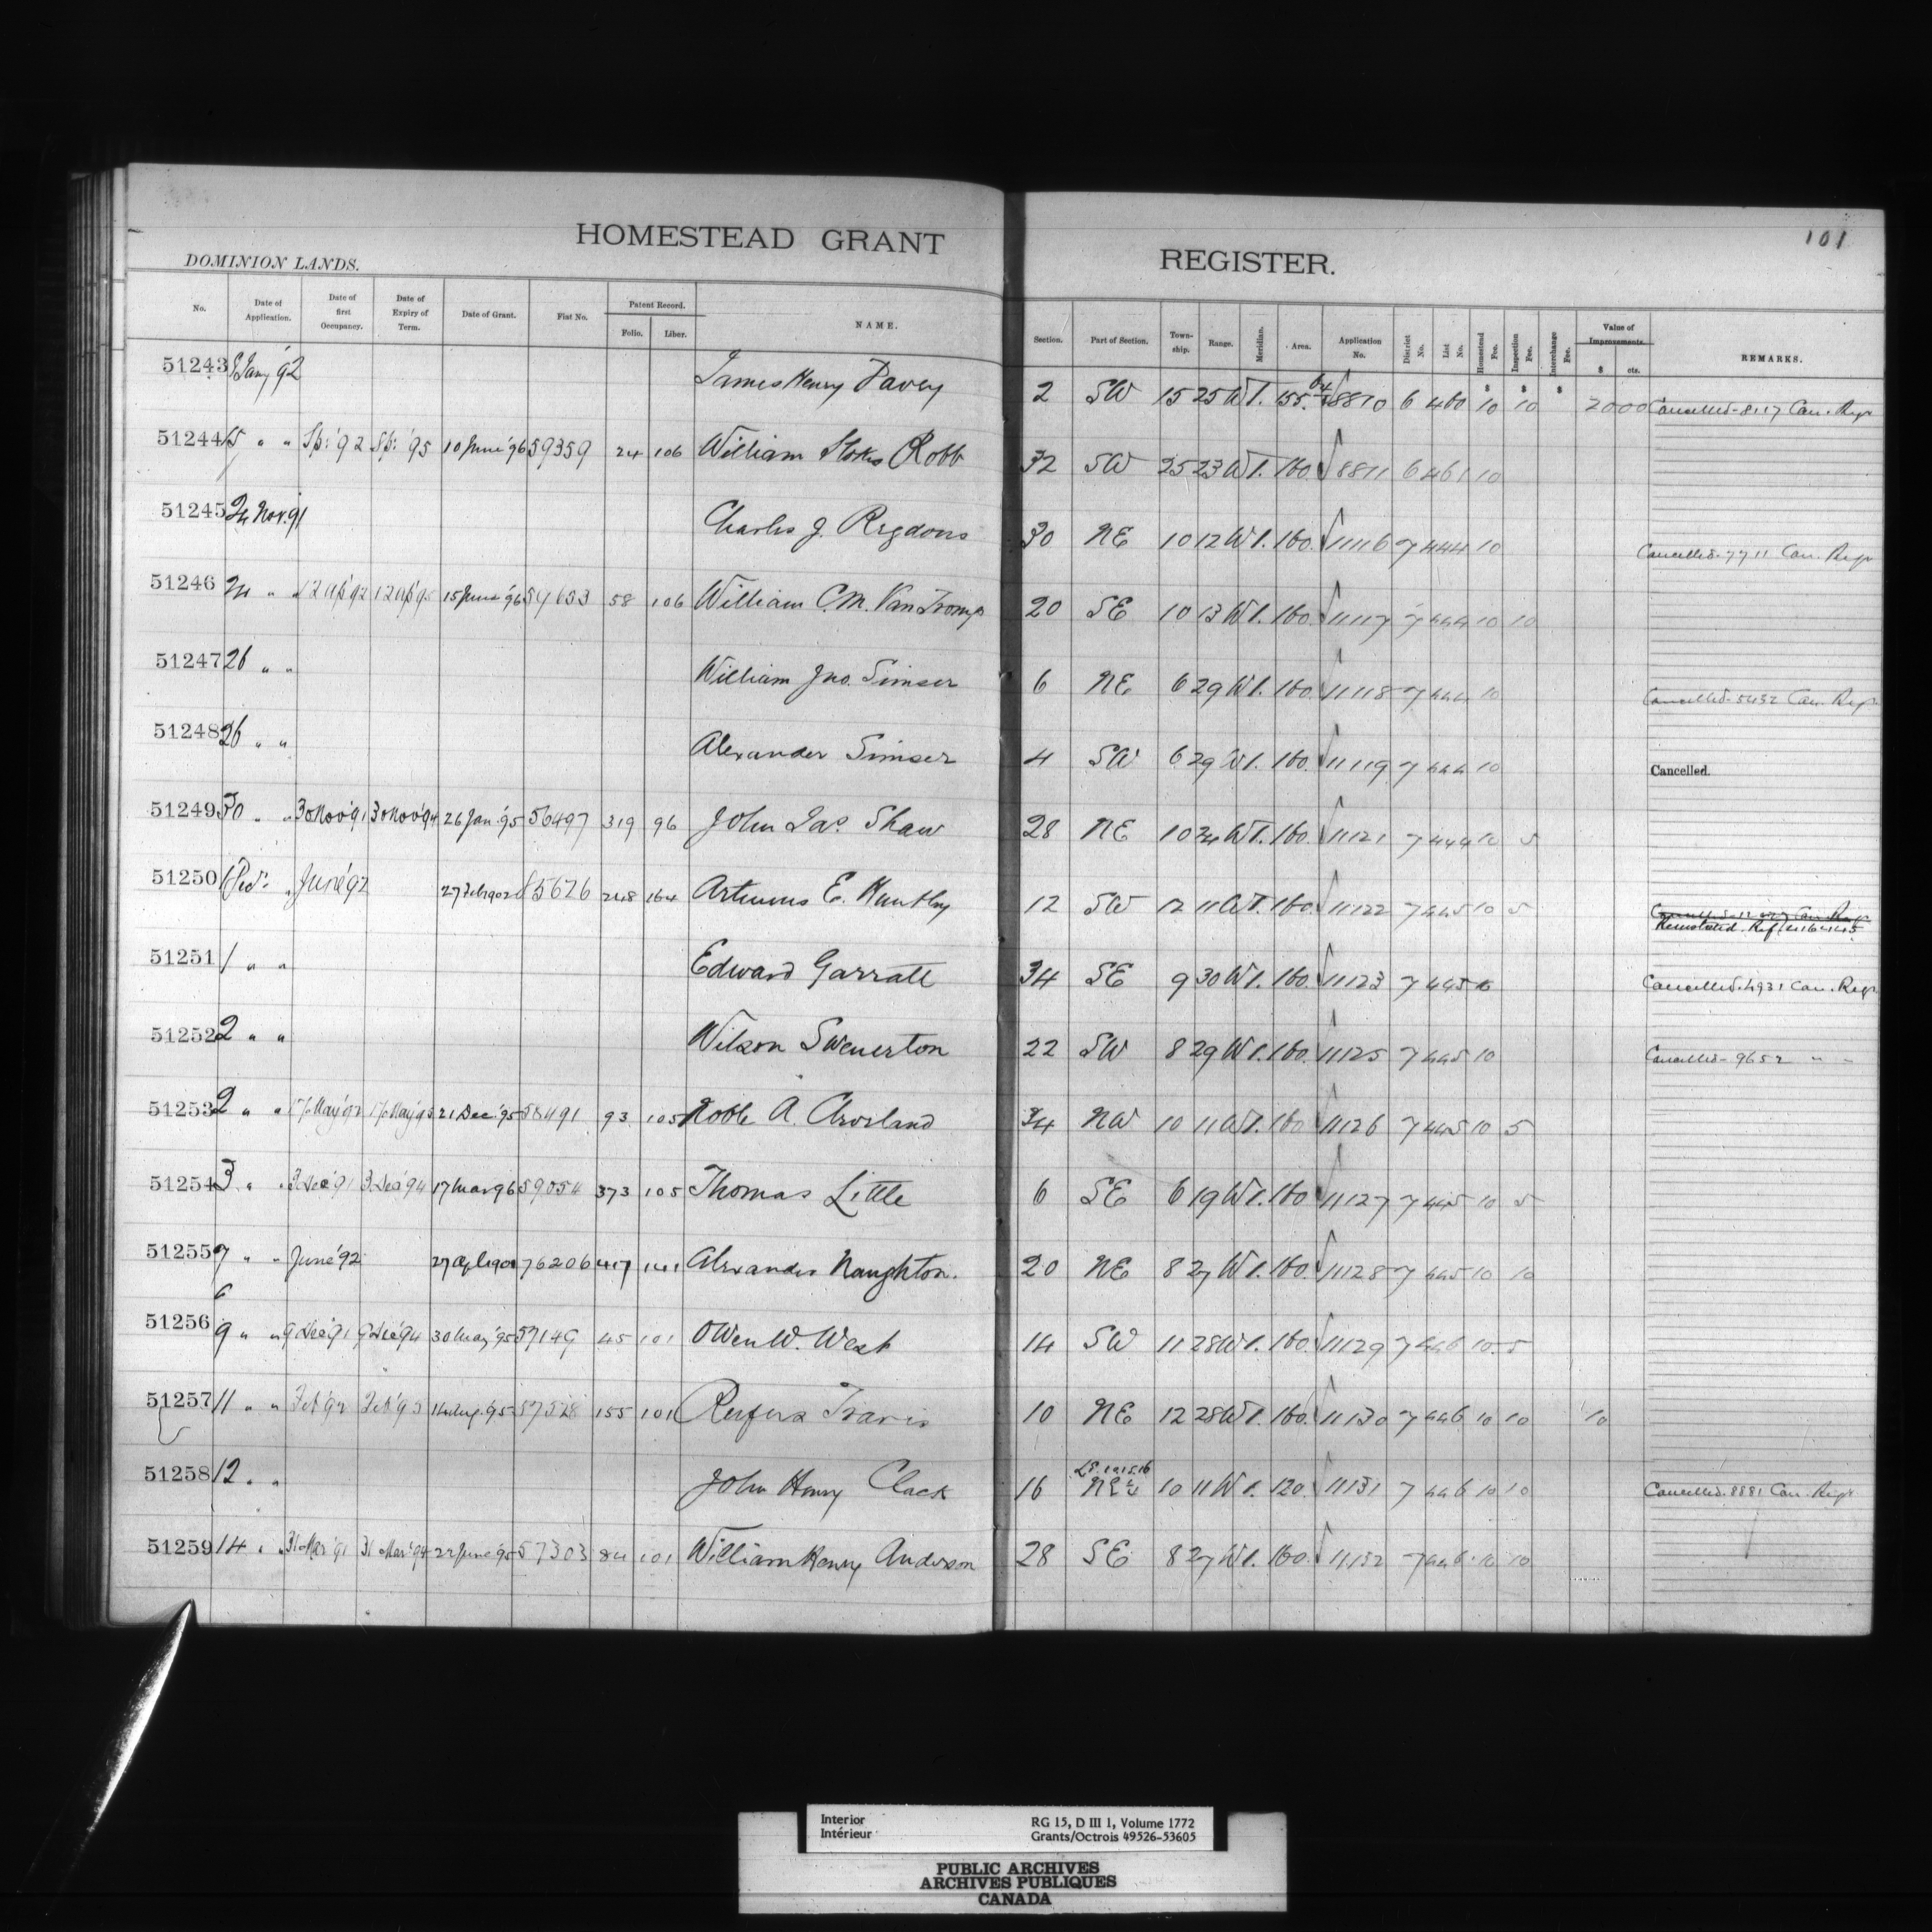 HOMESTEAD GRANT REGISTER.
101
DOMINION LANDS.
No. Date of Application. Date of first Occupancy. Date of Expiry of Term. Date of Grant. Fist No. Patent Record. Folio. Liber. NAME. Section. Part of Section. Town-ship. Range. Meridian. Area. Application No. District No. List No. Homestead Fee. Inspection Fee. Interchange Fee. Value of Improvements. $ cts. REMARKS.
51243 Jany '92 James Henry Davey 2 SW 15 25 W1. 155. 8810 6 460 10 10 2000 Cancelled-8117 Can. Regr
51244 15 " " Sp: '92 Sp: '95 10 June '96 59359 24 106 William Stokes Robb 32 SW 25 23 W1. 160. 8811 6 461 10
51245 24 Nov. 91 Charles J. Rigdons 30 NE 10 12 W1. 160. 11116 7 444 10 Cancelled-7711 Can. Regr
51246 24 " " 12 Ap '92 12 Ap '95 15 June '96 58 106 William C. M. Van Tromp 20 SE 10 13 W1. 160. 11117 7 444 10 10
51247 26 " " William Jno. Simser 6 NE 6 29 W1. 160. 11118 7 444 10 Cancelled-5452 Can. Regr
51248 26 " " Alexander Simser 4 SW 6 29 W1. 160. 11119 7 444 10 Cancelled.
51249 30 " " 30 Nov '91 30 Nov '94 26 Jan. '95 56497 319 96 John Jas. Shaw 28 NE 10 24 W1. 160. 11121 7 444 10 5
51250 1 Dec. " June '92 27 Feb 1902 85626 248 164 Artemus E. Huntley 12 SW 12 11 W1. 160. 11122 7 445 10 5 Reinstated. Ref.
51251 1 " " Edward Garratt 34 SE 9 30 W1. 160. 11123 7 445 10 Cancelled-4931 Can. Regr
51252 2 " " Wilson Swenerton 22 SW 8 29 W1. 160. 11125 7 445 10 Cancelled-9652 " "
51253 2 " " 17 May '92 17 May '95 21 Dec. '95 58491 93 105 Noble A. 34 NW 10 11 W1. 160 11126 7 445 10 5
51254 3 " " 3 Dec '91 3 Dec '94 17 Mar 96 59054 373 105 Thomas Little 6 SE 6 19 W1. 160 11127 7 445 10 5
51255 7 " " June '92 76206 417 141 Alexander Naughton. 20 NE 8 27 W1. 160. 11128 7 445 10 10
6
51256 9 " " 9 Dec '91 9 Dec '94 30 May '95 57149 45 101 Owen W. West 14 SW 11 28 W1. 160. 11129 7 446 10. 5
51257 11 " " Feb '92 Feb '95 14 Aug. 95 57528 155 101 Rufus Travis 10 NE 12 28 W1. 160. 11130 7 446 10 10 10
51258 12 " " John Henry Clack 16 NE 10 11 W1. 120. 11131 7 446 10 10 Cancelled-8881 Can. Regr
51259 14 " " 31 Mar '91 31 Mar '94 22 June '95 57303 84 101 William Henry Anderson 28 SE 8 27 W1. 160. 11132 7 446 10 10
Interior RG 15, D III 1, Volume 1772
Intérieur Grants/Octrois 49526-53605
PUBLIC ARCHIVES
ARCHIVES PUBLIQUES
CANADA